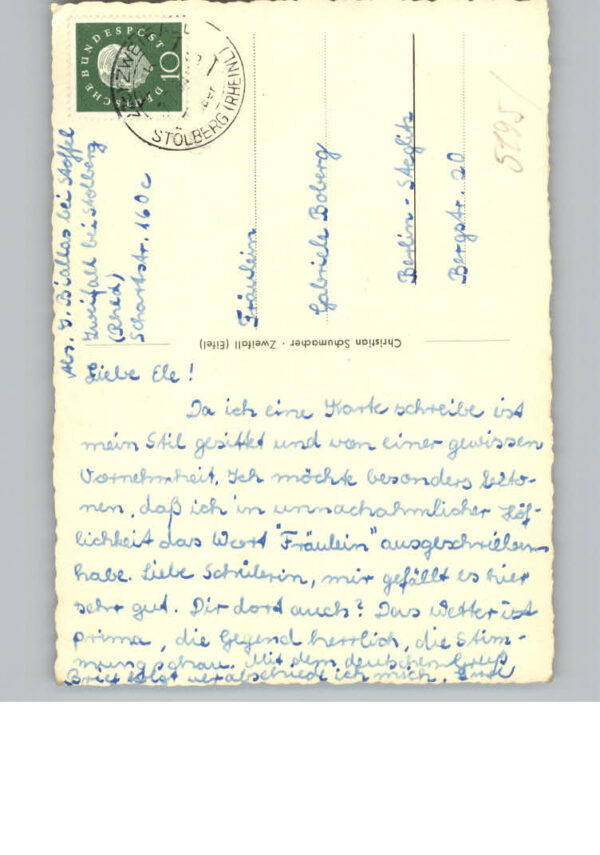 DEUTSCHE BUNDESPOST
10
STOLBERG (RHEINL)
5195/
Abs. G. Biallas bei Stoffel
Zweifall bei Stolberg
(Rhld)
Schartstr. 160c
Fräulein
Gabriele Boberg
Berlin-Steglitz
Bergstr. 20
Christian Schumacher · Zweifall (Eifel)
Liebe Ele!
Da ich eine Karte schreibe ist
mein Stil gesittet und von einer gewissen
Vornehmheit. Ich möchte besonders beto-
nen, daß ich in unnachahmlicher Höf-
lichkeit das Wort "Fräulein" ausgeschrieben
habe. Liebe Schülerin, mir gefällt es hier
sehr gut. Dir dort auch? Das Wetter ist
prima, die Gegend herrlich, die Stim-
mung schau. Mit dem deutschen Gruß
Brief folgt verabschiede ich mich.